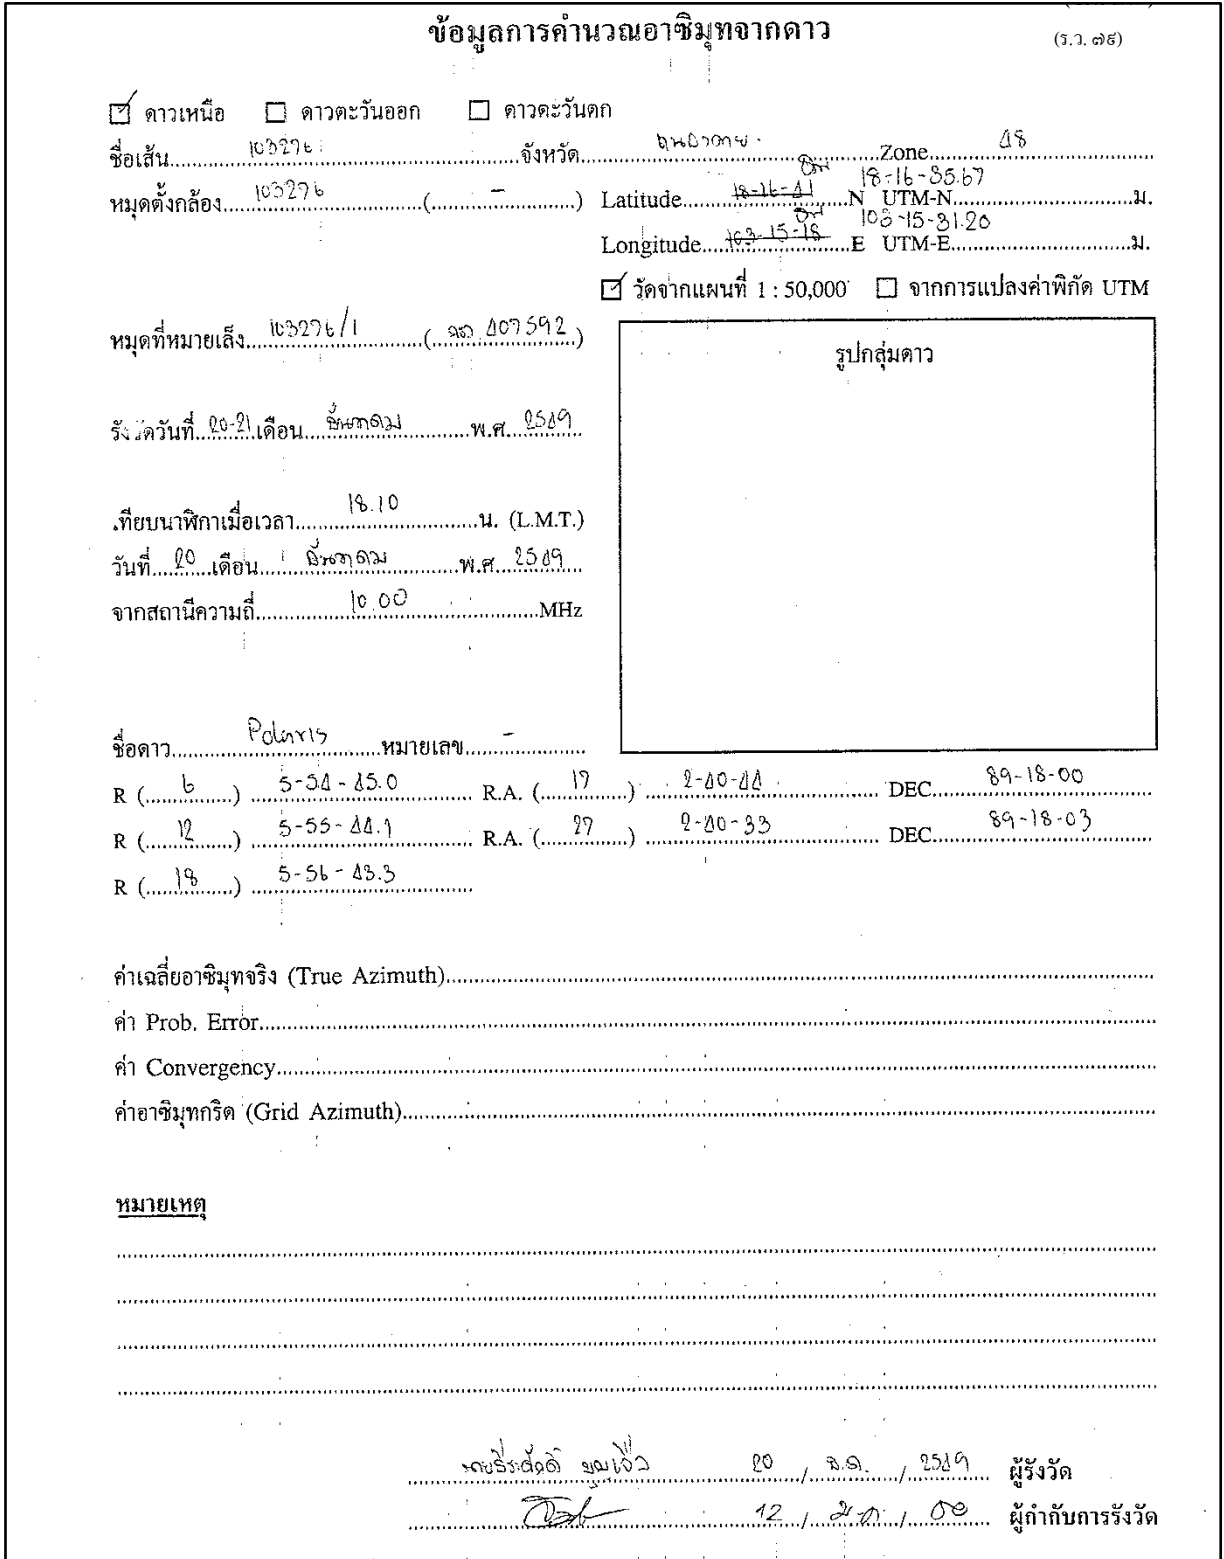 ข้อมูลการคำนวณอาซิมุทจากดาว
(ร.ว. ๗๕)
ดาวเหนือ ดาวตะวันออก ดาวตะวันตก
ชื่อเส้น 103276 จังหวัด Zone 48
18-16-35.67
หมุดตั้งกล้อง 103276 ( - ) Latitude 18-16-41 N UTM-N ม.
103-15-31.20
Longitude 103-15-18 E UTM-E ม.
วัดจากแผนที่ 1 : 50,000 จากการแปลงค่าพิกัด UTM
หมุดที่หมายเล็ง 103276/1 ( 407592 )
รูปกลุ่มดาว
รังวัดวันที่ 20-21 เดือน ธันวาคม พ.ศ. 2549
เทียบนาฬิกาเมื่อเวลา 18.10 น. (L.M.T.)
วันที่ 20 เดือน ธันวาคม พ.ศ. 2549
จากสถานีความถี่ 10.00 MHz
ชื่อดาว Polaris หมายเลข -
R ( 6 ) 5-54-45.0 R.A. ( 17 ) 2-40-44 DEC. 89-18-00
R ( 12 ) 5-55-44.1 R.A. ( 27 ) 2-40-33 DEC. 89-18-03
R ( 18 ) 5-56-43.3
ค่าเฉลี่ยอาซิมุทจริง (True Azimuth)
ค่า Prob. Error
ค่า Convergency
ค่าอาซิมุทกริด (Grid Azimuth)
หมายเหตุ
20 / ธ.ค. / 2549 ผู้รังวัด
12 / ม.ค. / 50 ผู้กำกับการรังวัด